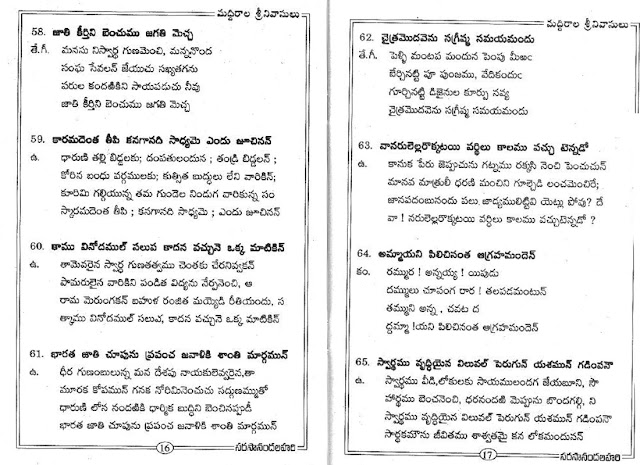 మద్దిరాల శ్రీనివాసులు
58. జాతి కీర్తిని బెంచుము జగతి మెచ్చ
తే.గీ. మనసు నిస్వార్థ గుణమెంచి, మన్ననొంద
సంఘ సేవలన్ జేయుచు సఖ్యతగను
పరుల కందఱికిని సాయపడుచు నీవు
జాతి కీర్తిని బెంచుము జగతి మెచ్చ
59. కారమదెంత తీపి కనగానది సాధ్యమె ఎందు జూచినన్
ఉ. ధారుణి తల్లి బిడ్డలకు; దంపతులందున ; తండ్రి బిడ్డలన్ ;
కోరిన బంధు వర్గములకు; కుత్సిత బుద్ధులు లేని వారికిన్;
కూరిమి గల్గియున్న తమ గుండెల నిండుగ వారికున్న సం
స్కారమదెంత తీపి ; కనగానది సాధ్యమె ; ఎందు జూచినన్
60. తాము వినోదముల్ సలువ కాదన వచ్చునె ఒక్క మాటికిన్
ఉ. తామెవరైన స్వార్థ గుణతత్వము చెంతకు చేరనివ్వకన్
పామరులైన వారికిని పండిత విద్యను నేర్పనెంచి, ఆ
రామ మెరుంగకన్ బహుళ రంజిత మయ్యెడి రీతియందు, స
త్కాము వినోదముల్ సలువ, కాదన వచ్చునె ఒక్క మాటికిన్
61. భారత జాతి చూపును ప్రపంచ జనాళికి శాంతి మార్గమున్
ఉ. ధీర గుణంబులున్న మన దేశపు నాయకులెవ్వరైన,తా
మూరక కోపమున్ గనక నోరిమినెంచుచు సద్గుణమ్ముతో
ధారుణి లోన నందఱికి ధార్మిక బుద్ధిని బెంచినప్పుడీ
భారత జాతి చూపును ప్రపంచ జనాళికి శాంతి మార్గమున్
16
సరసానందలహరి
మద్దిరాల శ్రీనివాసులు
62. చైత్రమొదవెను సగ్రీష్మ సమయమందు
తే.గీ. పెళ్ళి మంటప మందున పెంపు మీఱఁ
బేర్చినట్టి పూ పుంజము, వేదికందుఁ
గూర్చినట్టి డిజైనుల కూర్పు నవ్య
చైత్రమొదవెను సగ్రీష్మ సమయమందు
63. వానరులెల్లరొక్కటయి వర్థిలు కాలము వచ్చు టెన్నడో
ఉ. కానుక పేరు జెప్పుచును గట్నము రక్కసి నెంచి పెంచుచున్
మానవ మాత్రులీ ధరణి మంచిని గూల్చెడి లంచమెంచిరే;
జానపదంబునందు పలు జాడ్యములిట్టివి యెట్లు పోవు? దే
వా ! నరులెల్లరొక్కటయి వర్థిలు కాలము వచ్చుటెన్నడో ?
64. అమ్మాయని పిలిచినంత ఆగ్రహమందెన్
కం. రమ్మర ! అన్నయ్య ! యిపుడు
దమ్ములు చూపంగ రార ! తలపడమంటున్
తమ్ముని అన్న , చవట ద
ద్దమ్మా !యని పిలిచినంత ఆగ్రహమందెన్
65. స్వార్థము వృద్ధియైన విలువల్ పెరుగున్ యశమున్ గడింపనౌ
ఉ. స్వార్థము వీడి,లోకులకు సాయములందగ జేయబూని, సౌ
హార్థము బెంచనెంచి, ధరనందఱి మెప్పును బొందగల్గి, ని
స్వార్థము వృద్ధియైన విలువల్ పెరుగున్ యశమున్ గడింపనౌ
సార్థకమౌను జీవితము శాశ్వతమై కన లోకమందునన్
17
సరసానందలహరి